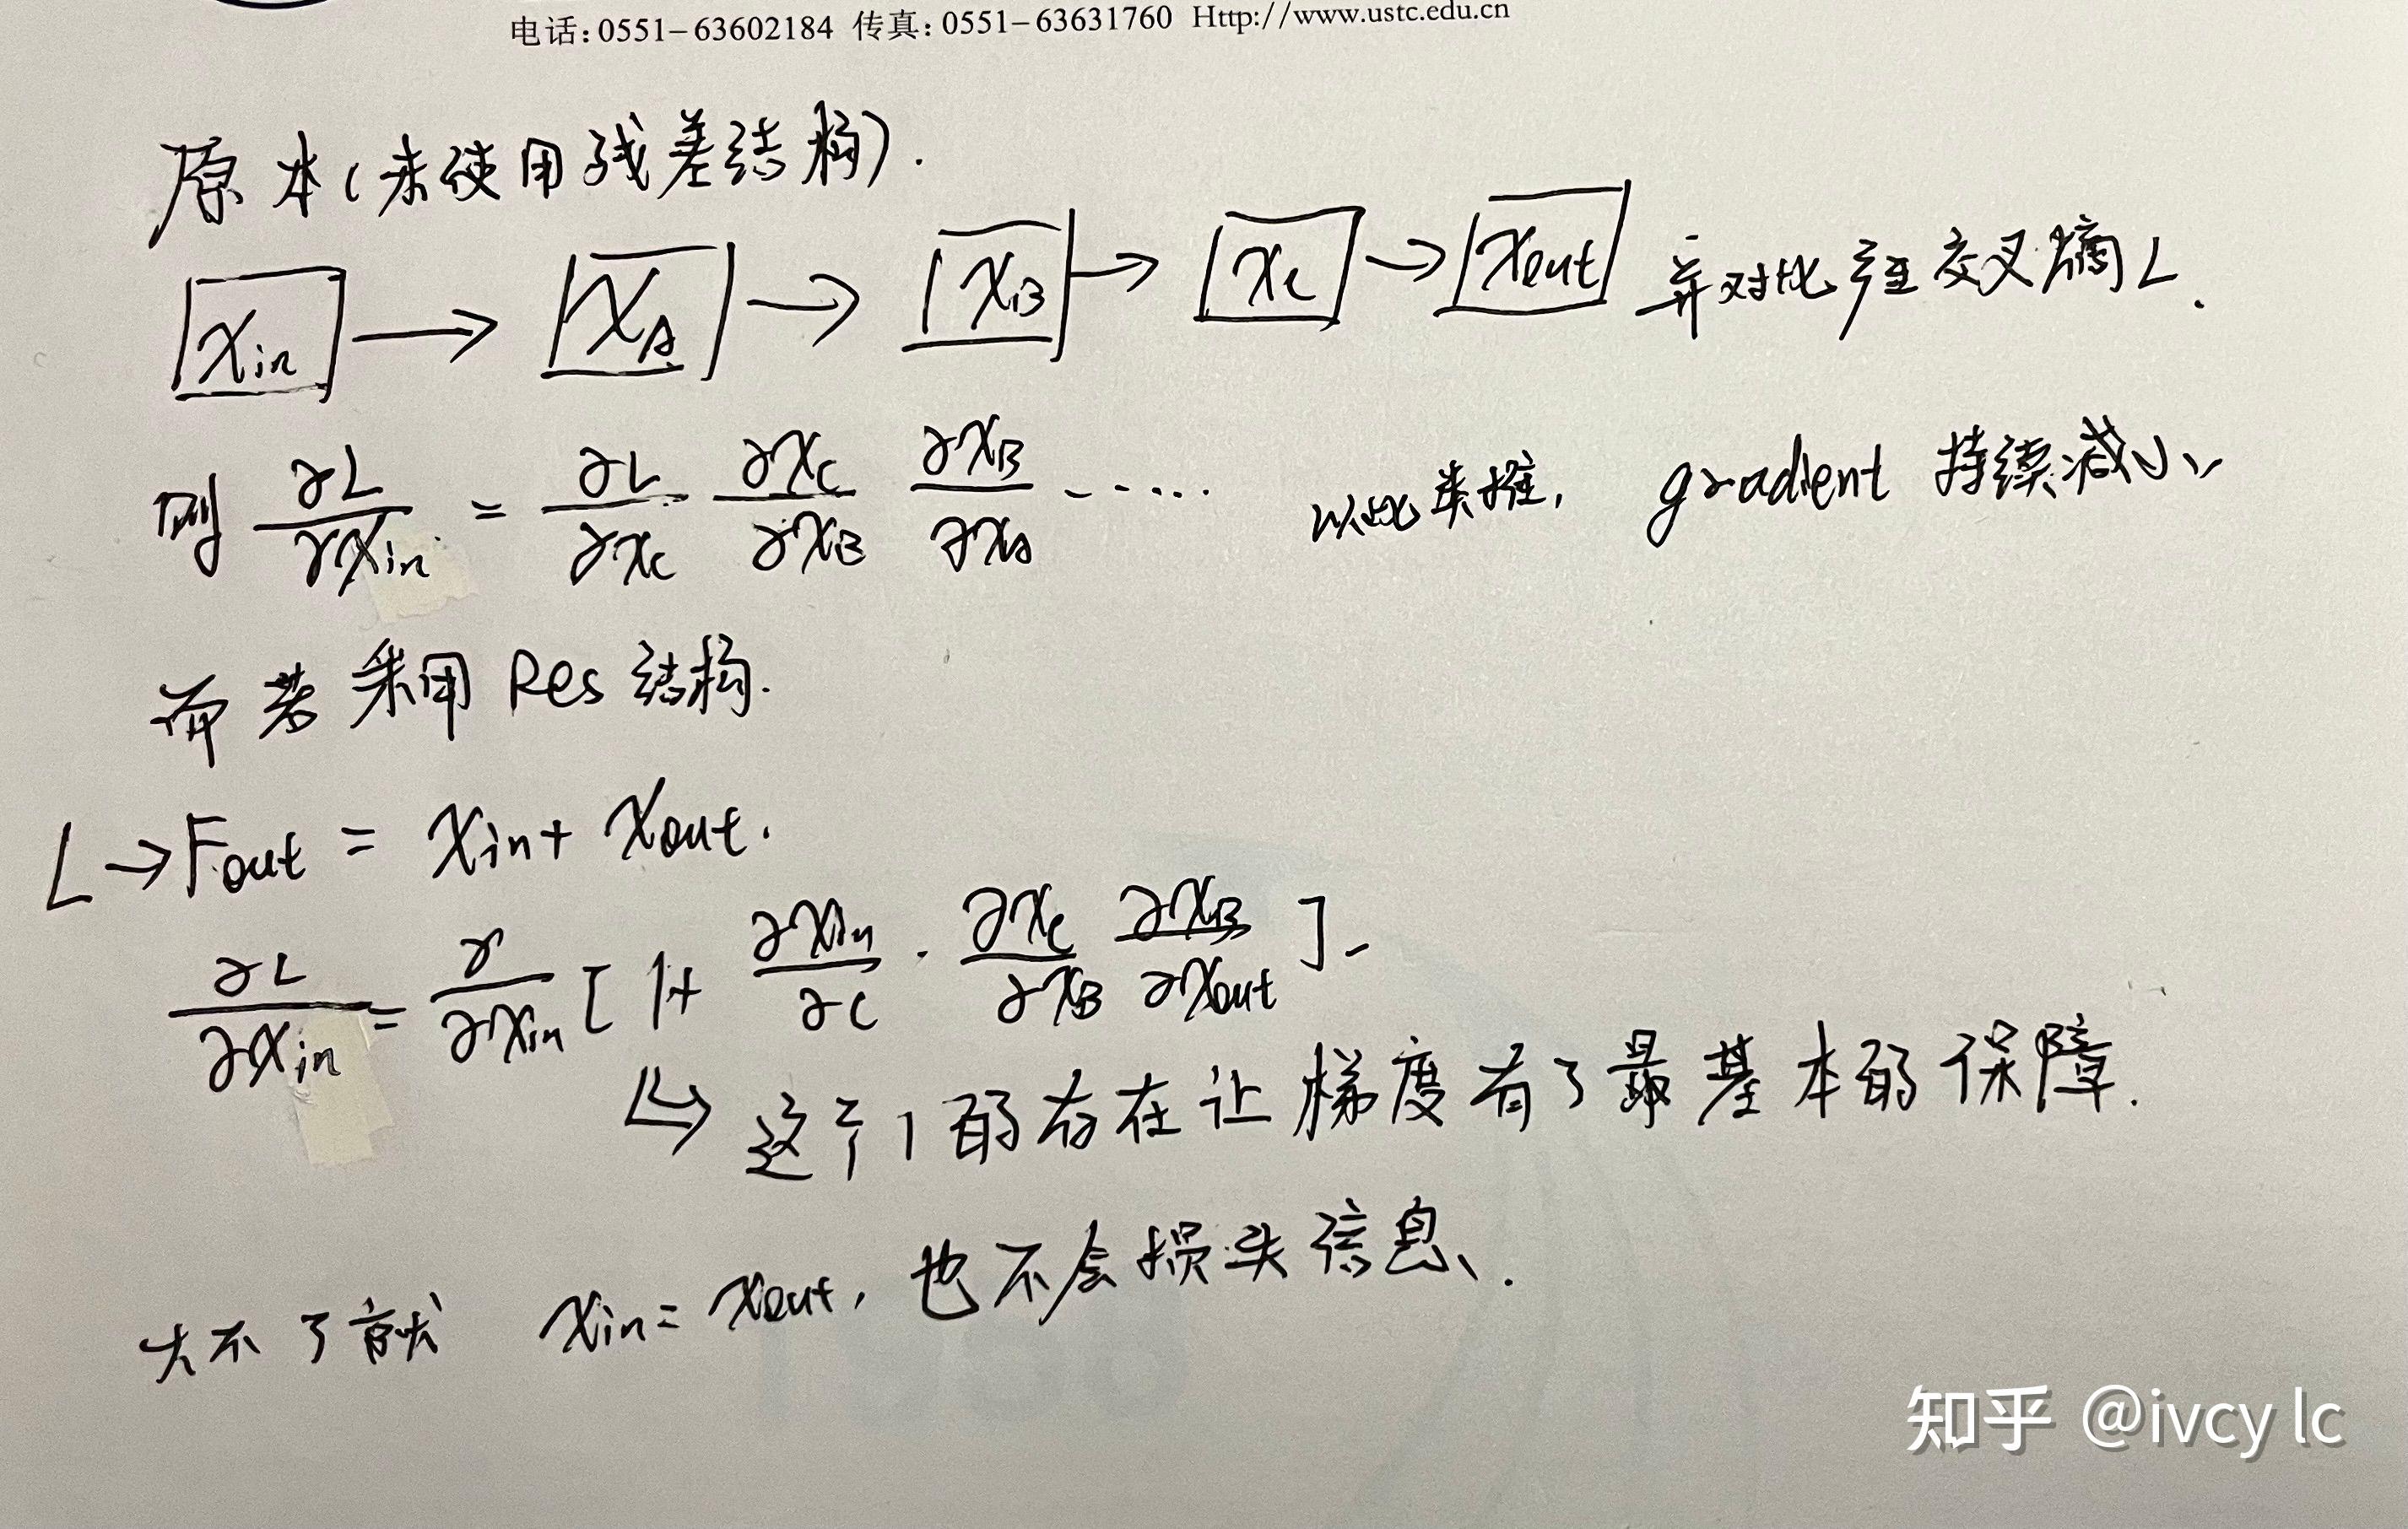 电话:0551-63602184 传真:0551-63631760 Http://www.ustc.edu.cn
原本(未使用残差结构).
Xin → XA → XB → Xc → Xout 并对比 交叉熵L.
则 ∂L/∂Xin = ∂L/∂Xc ∂Xc/∂XB ∂XB/∂XA ...... 以此类推, gradient 持续减小
而若采用Res结构.
L→Fout = Xin+ Xout.
∂L/∂Xin = ∂/∂Xin [1+ ∂Xin/∂C · ∂Xc/∂XB ∂XB/∂Xout].
↳ 这个1的存在让梯度有了最基本的保障.
大不了就 Xin=Xout, 也不会损失信息.
知乎 @ivcy lc